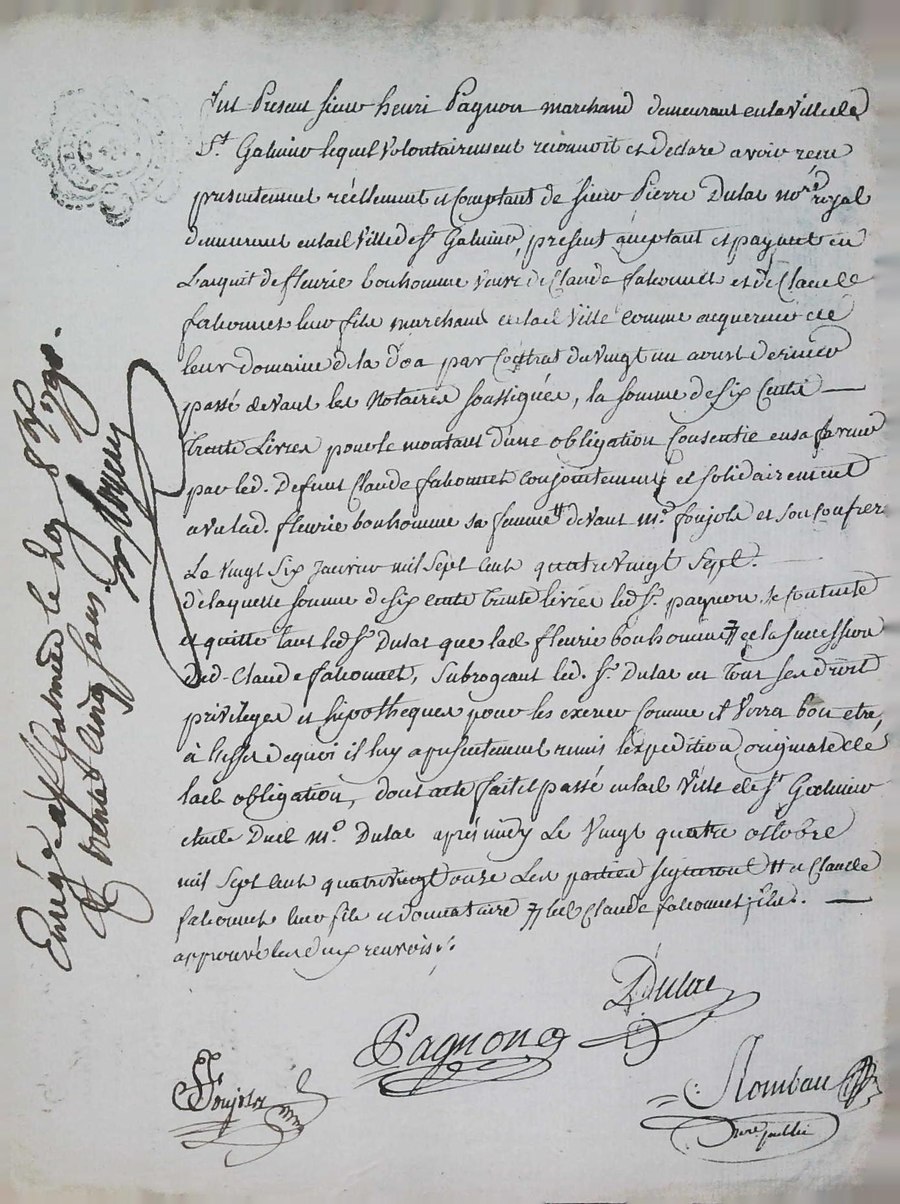 Fut Present sieur henri Pagnon marchand demeurant en la Ville de
St. Galmier lequel Volontairement reconnoit et declare avoir recu
presentement réellement et Comptant de sieur Pierre Dulac nore royal
demeurant en lad Ville de st Galmier, present acceptant et payant en
L'acquit de fleurie bonhomme veuve de Claude falconnet et de Claude
falconnet leur fils marchand en lad Ville Comme acquereur de
leur domaine de la Doa par Contrat du vingt un avril dernier
passé devant les Notaires soussignés, la somme de six Cents
trente Livres pour le montant d'une obligation Consentie en sa faveur
par led. Defunt Claude falconnet Conjointement et solidairement
avec lad. fleurie bonhomme sa femme devant me. foujols et son Confrere
Le vingt Six Janvier mil Sept Cent quatre vingt Sept.
de laquelle somme de six cents trente livres led sr. pagnon se contente
et quitte tant led sr Dulac que lad fleurie bonhomme et la succession
dud. Claude falconnet, subrogeant led. sr. Dulac en tous ses droits
privileges et hipotheques pour les exercer Comme il verra bon etre,
à l'effet de quoi il luy a presentement remis l'expedition originale de
lade obligation, dont acte fait et passé en lad Ville de st Galmier
etude dud me. Dulac après midy Le Vingt quatre octobre
mil Sept Cent quatre vingt onze Les parties signeront et Claude
falconnet leur fils et donnataire led Claude falconnet fils.
approuvé les deux renvois.
Dulac
Pagnon
foujols
Rombau
nore public
Enregé à st Galmier le 29 8bre 1791.
R trente cinq sous.